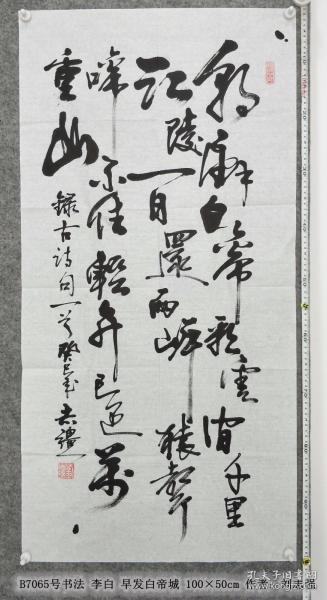 朝辞白帝彩云间千里
江陵一日還两岸猿聲
啼不住輕舟已过萬
重山
錄古诗句一首癸巳年志強
B7065号书法 李白 早发白帝城 100×50cm 作者：刘志强
孔夫子旧书网